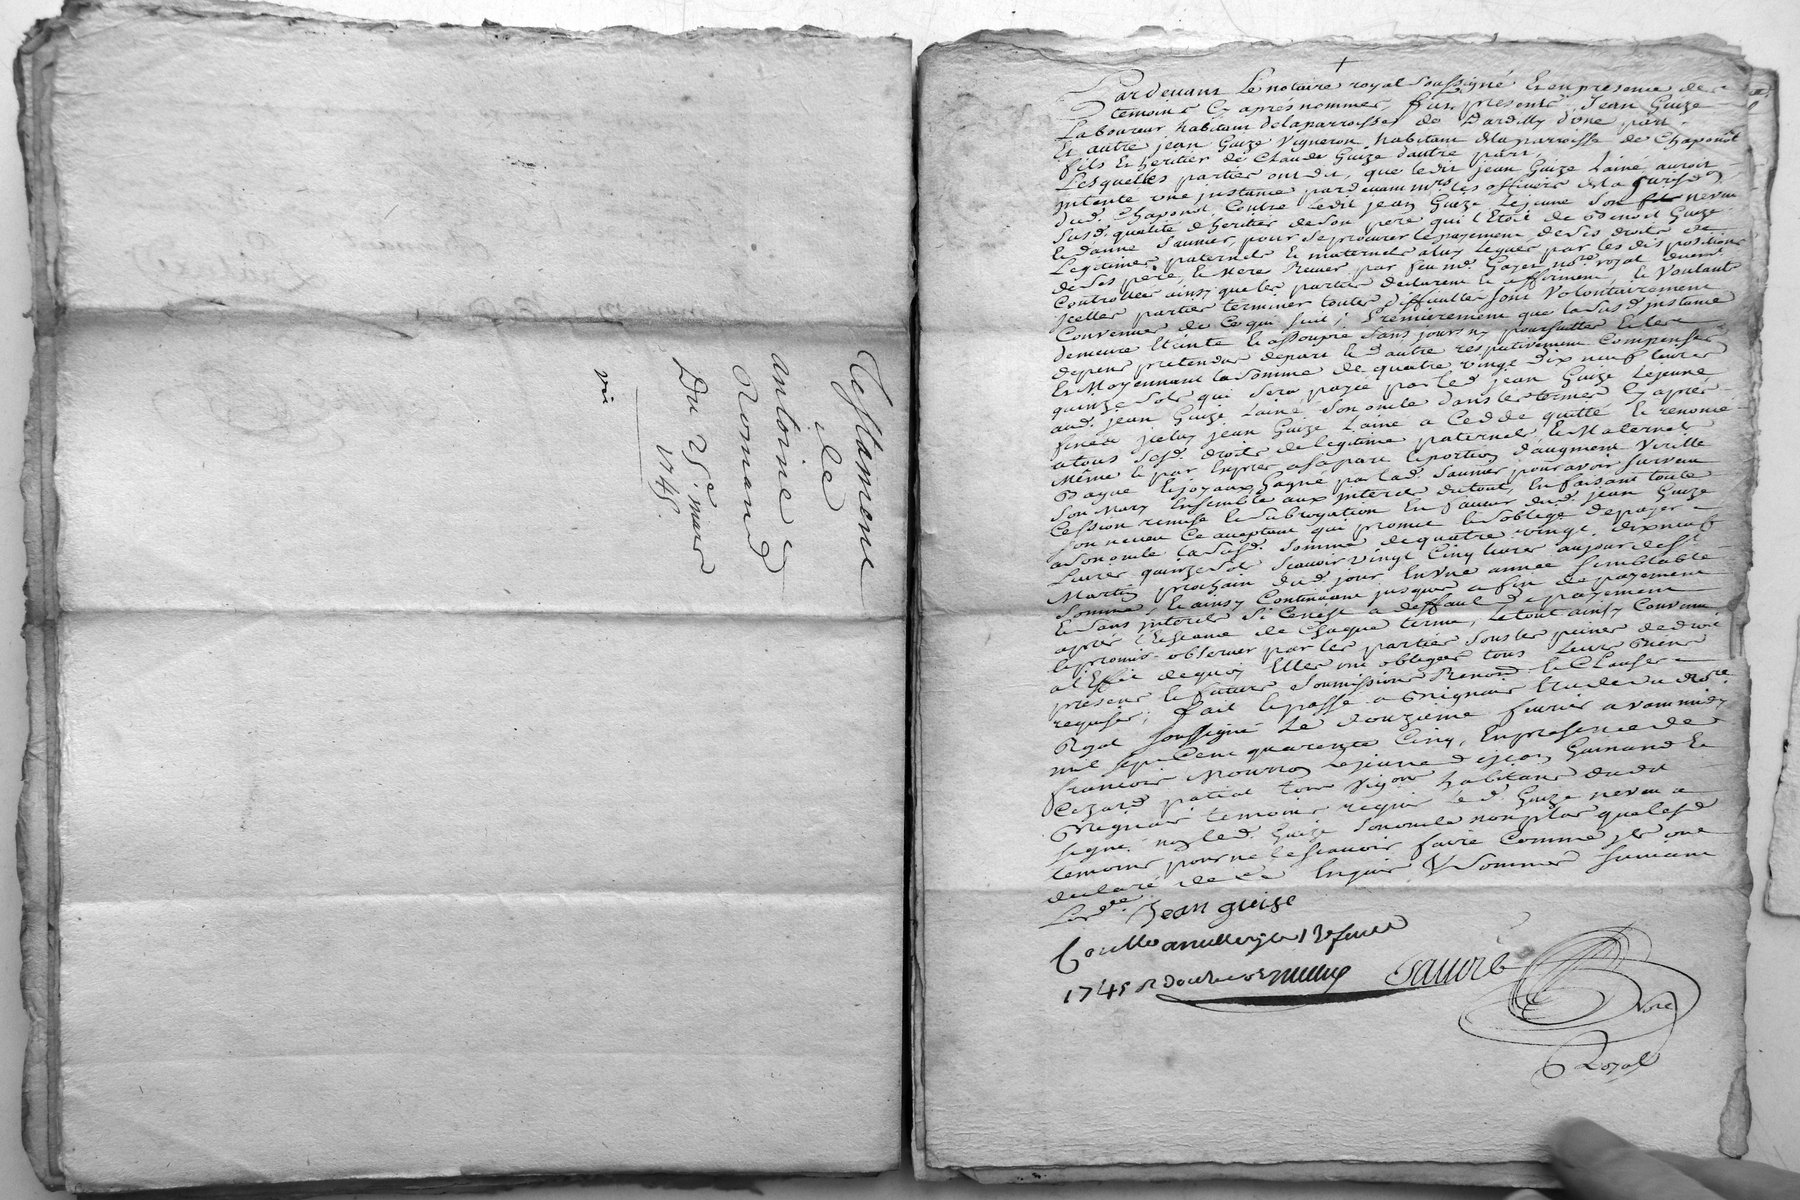 Testament
de
antoine
Romand
Du 25e. mars
1745.
vu
Pardevant Le notaire royal soussigné Et en presence des
temoins Cy apres nommes, fut present Jean Guize
Laboureur habitant de la parroisse de Dardilly d'une part
Et autre jean Guize Vigneron habitant de la parroisse de Chaponost
fils Et heritier de Claude Guize d'autre part,
Lesquelles parties ont dit, que ledit jean Guize Lainé auroit
intenté une instance pardevant mrs. les officiers de la jurisdon
dud. Chaponost Contre ledit jean Guize Lejeune son neveu
susd. qualité d'heritier de son pere qui l'Etoit de Benoit Guize
Et danne Saunier, pour se procurer le payement de ses droits de
Legitimes paternels Et maternels a luy Leguer par les dispositions
de ses pere Et Mere Recues par feu me. Gayet notre. royal duement
Controllées ainsy que les parties declarent Et afirment Et Voulants
jcelles parties terminer toutes difficultés sont Volontairement
Convenues de Ce qui suit; Premierement que la susd. jnstance
demeure Eteinte Et assoupie sans jours ny poursuittes Et les
depens pretendus de part Et d'autre respectivement Compensés
Et Moyennant la somme de quatre vingt dix neuf livres
quinze sols qui sera payée par led. jean Guize Lejeune
aud. jean Guize Lainé son oncle dans les termes Cy apres
fixés jceluy jean Guize Lainé a Cedé quitté Et renoncé
a tous sesd. droits de legitime paternels Et Maternels
Même Et par Exprés a sa part Et portion d'augment Virille
Bague Et joyaux Gagné par lad. Saunier pour avoir survecu
son Mary Ensemble aux jnterets du tout, En faisant toute
Cession remise Et subrogation En faveur dud. jean Guize
son neveu Ce acceptant qui promet Et s'oblige de payer
a son oncle la susd. somme de quatre vingt dix neuf
Livres quinze sols scavoir vingt Cinq livres au jour de st.
Martin prochain dud. jour En Une année semblable
somme, Et ainsy Continuant jusques a fin de payement
Et sans jnterets si Ce n'est a deffaut de payement
aprés l'Echeance de Chaque terme, Le tout ainsy Convenu
Et promis observer par les parties sous les peines de droit
a l'Effet de quoy Elles ont obligées tous Leurs Biens
presens Et futurs soumissions Renond. Et Clauses
requises; fait Et passé a Brignais Etude du notre.
Royal soussigné Le douzieme fevrier avant midy
mil sept Cent quarente Cinq, En presence de
francois Mourron Lejeune Guinand Et
Cezard patial tous Vigons habitans dudit
Brignais temoins requis Led. Guize neveu a
signé non led. Guize son oncle non plus que lesd.
temoins pour ne le scavoir faire Comme jls ont
declaré de Ce Enquis Et sommés suivant
Lordce.
Jean guize
Conttrollé a millery le 13e fevrier
1745 R douze sols
Sauvré
Notre
Royal